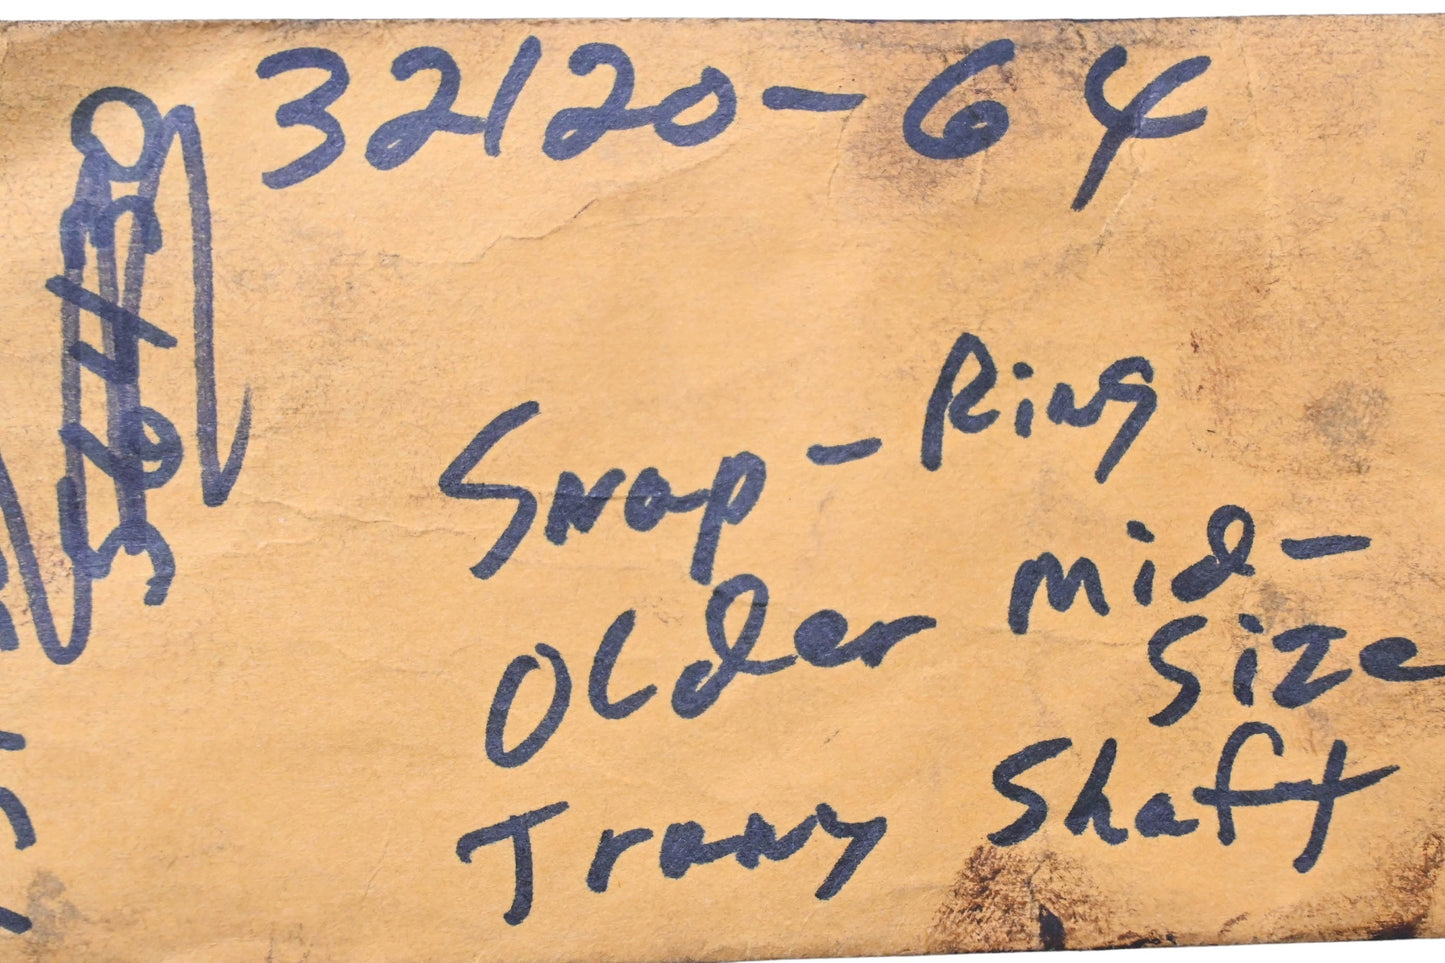 32120-64
Snap-Ring
Older Mid-
Size
Trany Shaft